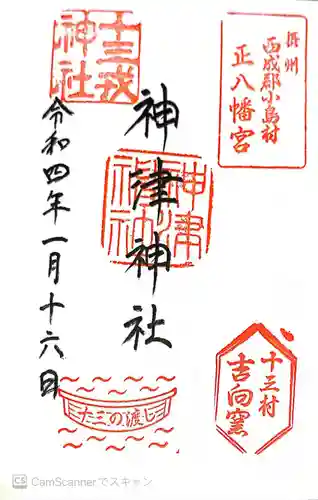 摂州
西成郡小島村
正八幡宮
十三戎
神社
神津神社
神津
神社
令和四年一月十六日
十三村
吉向窯
し渡の三た
CS CamScannerでスキャン